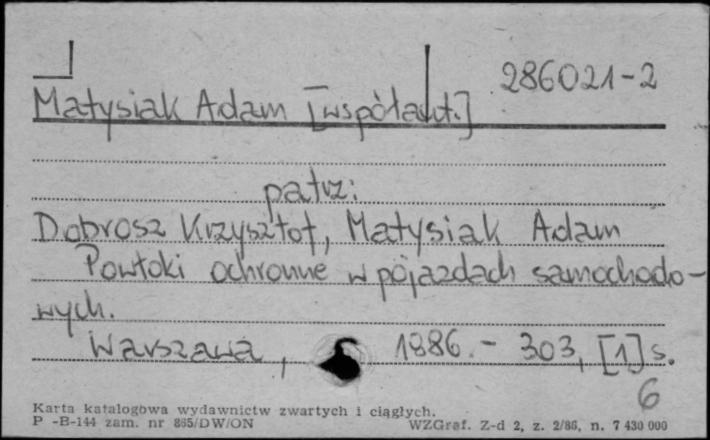 286021-2
Matysiak Adam [współaut.]
patrz:
Dobrosz Krzysztof, Matysiak Adam
Powłoki ochronne w pojazdach samochodo-
wych.
Warszawa, 1986.- 303, [1] s.
6
Karta katalogowa wydawnictw zwartych i ciągłych.
P -B-144 zam. nr 865/DW/ON WZGraf. Z-d 2, z. 2/86, n. 7 430 000